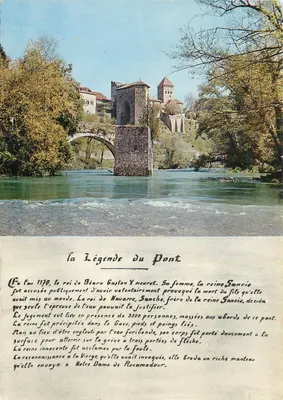 La Légende du Pont
En l'an 1170, le roi de Béarn Gaston V mourut. Sa femme, la reine Sancie
fut accusée publiquement d'avoir volontairement provoqué la mort du fils qu'elle
avait mis au monde. Le roi de Navarre, Sanche, frère de la reine Sancie, décida
que seule l'épreuve de l'eau pouvait la justifier.
Le jugement eut lieu en présence de 3000 personnes, massées aux abords de ce pont.
La reine fut précipitée dans le Gave, pieds et poings liés.
Mais au lieu d'être engloutie par l'eau, son corps fut porté doucement à la
surface pour atterrir sur la grève à trois portées de flèche.
La reine innocente fut acclamée par la foule.
En reconnaissance à la Vierge, qu'elle avait invoquée, elle broda un riche manteau
qu'elle envoya à Notre Dame de Rocamadour.